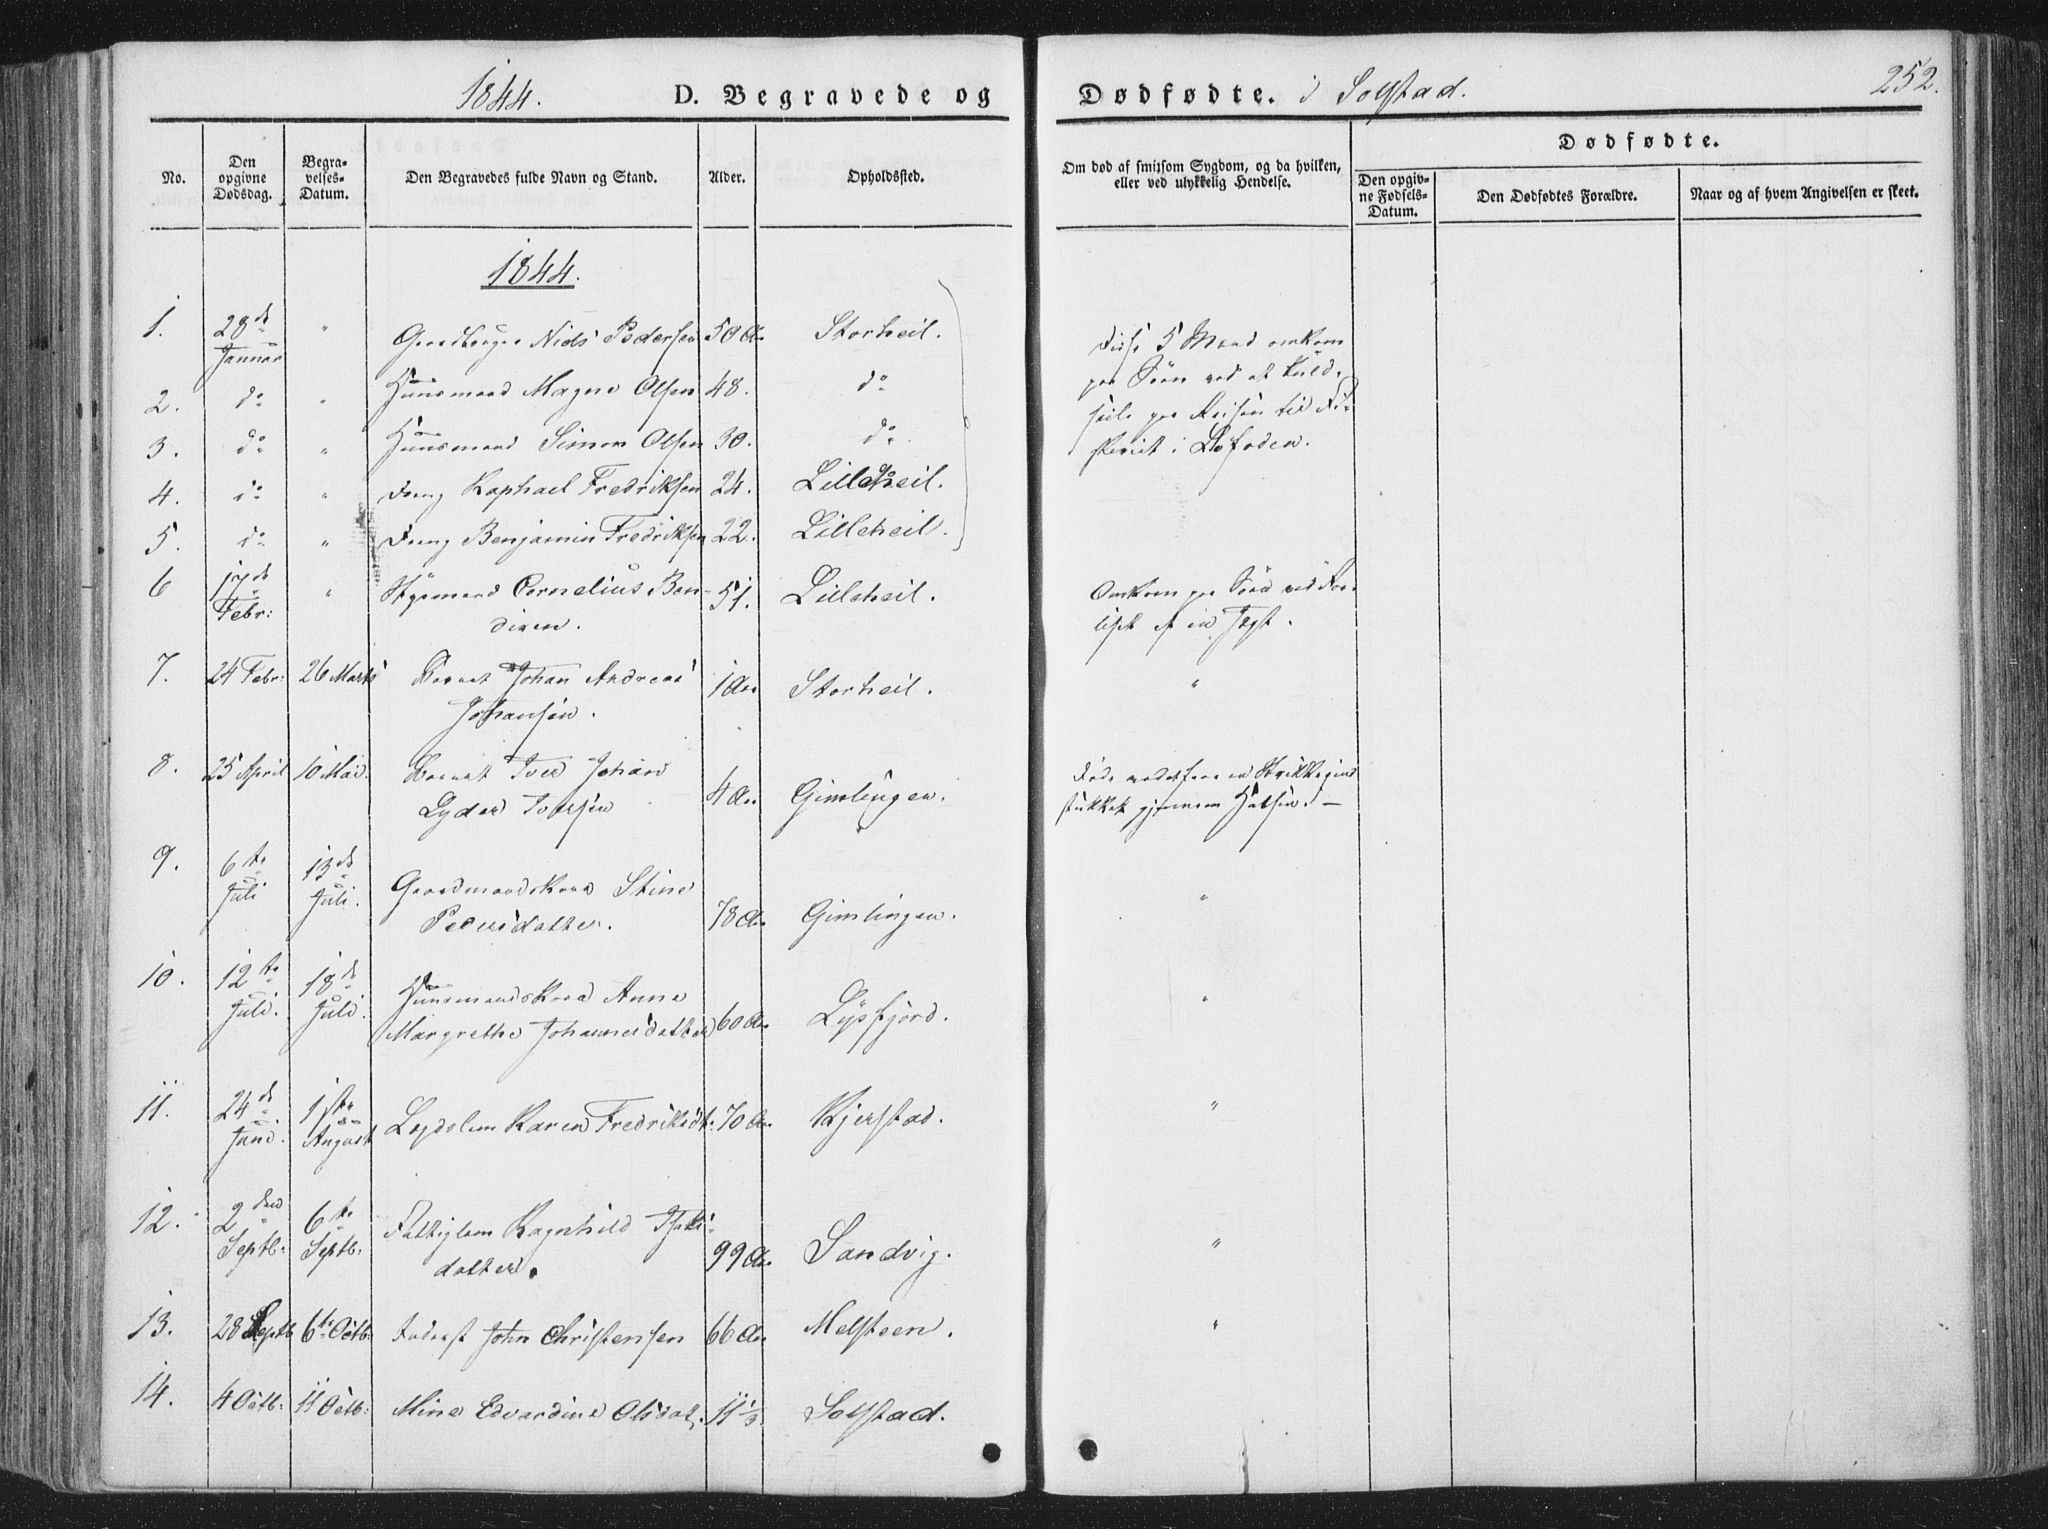 1844. D. Begravede og Dødfødte. i Solstad. 252.
No.
Den opgivne Dødsdag.
Begravelses-Datum.
Den Begravedes fulde Navn og Stand.
Alder.
Opholdssted.
Om død af smitsom Sygdom, og da hvilken,
eller ved ulykkelig Hendelse.
Dødfødte.
Den opgivne Fødsels-Datum.
Den Dødfødtes Forældre.
Naar og af hvem Angivelsen er skeet.
1844.
1. 28de Januar " Gaardbruger Nids Pedersen 50 Aar Storheil. Disse 5 Mænd omkom
2. do " Huusmand Magnus Olsen 48. do paa Søen ved at kuld-
3. do " Huusmand Simon Olsen 30. do. seile paa Reisen til Fi-
skeriet i Lofoden.
4. do " Dreng Raphael Fredriksen 24. Lilleheil.
5. do " Dreng Benjamin Fredriksen 22. Lilleheil.
6 17de Febr: " Cornelius Ben- 51. Lilleheil. Omkom paa Søen ved For-
dixen. liset af en Jægt.
7. 24 Febr: 26 Marts Barnet Johan Andreas 1 Aar Storheil. "
Johansen.
8. 25 April 10 Mai. Barnet Iver Johan
Lyder Iversen 4 Aar Gimlingen. stukket gjennem Halsen. —
9. 6te Juli 13de Juli. Gaardmandskone Stine
Pedersdatter. 78 Aar Gimlingen. "
10. 12te Juli. 18de Juli. Huusmandskone Anne
Margrethe Johannesdatter 60 Aar Lysfjord. "
11. 24de Juni. 1ste August Lægdslem Karen Fredriksdt: 70 Aar Kjerstad. "
12. 2den Septb: 6te Septb: Fattiglem Ragnhild
datter. 99 Aar Sandvig. "
13. 28 Septb 6te Octb: John Christensen 66 Aar Melsteen. "
14. 4 Octb: 11 Octb: Mine Edvardine Olsdat, 11 Solstad.